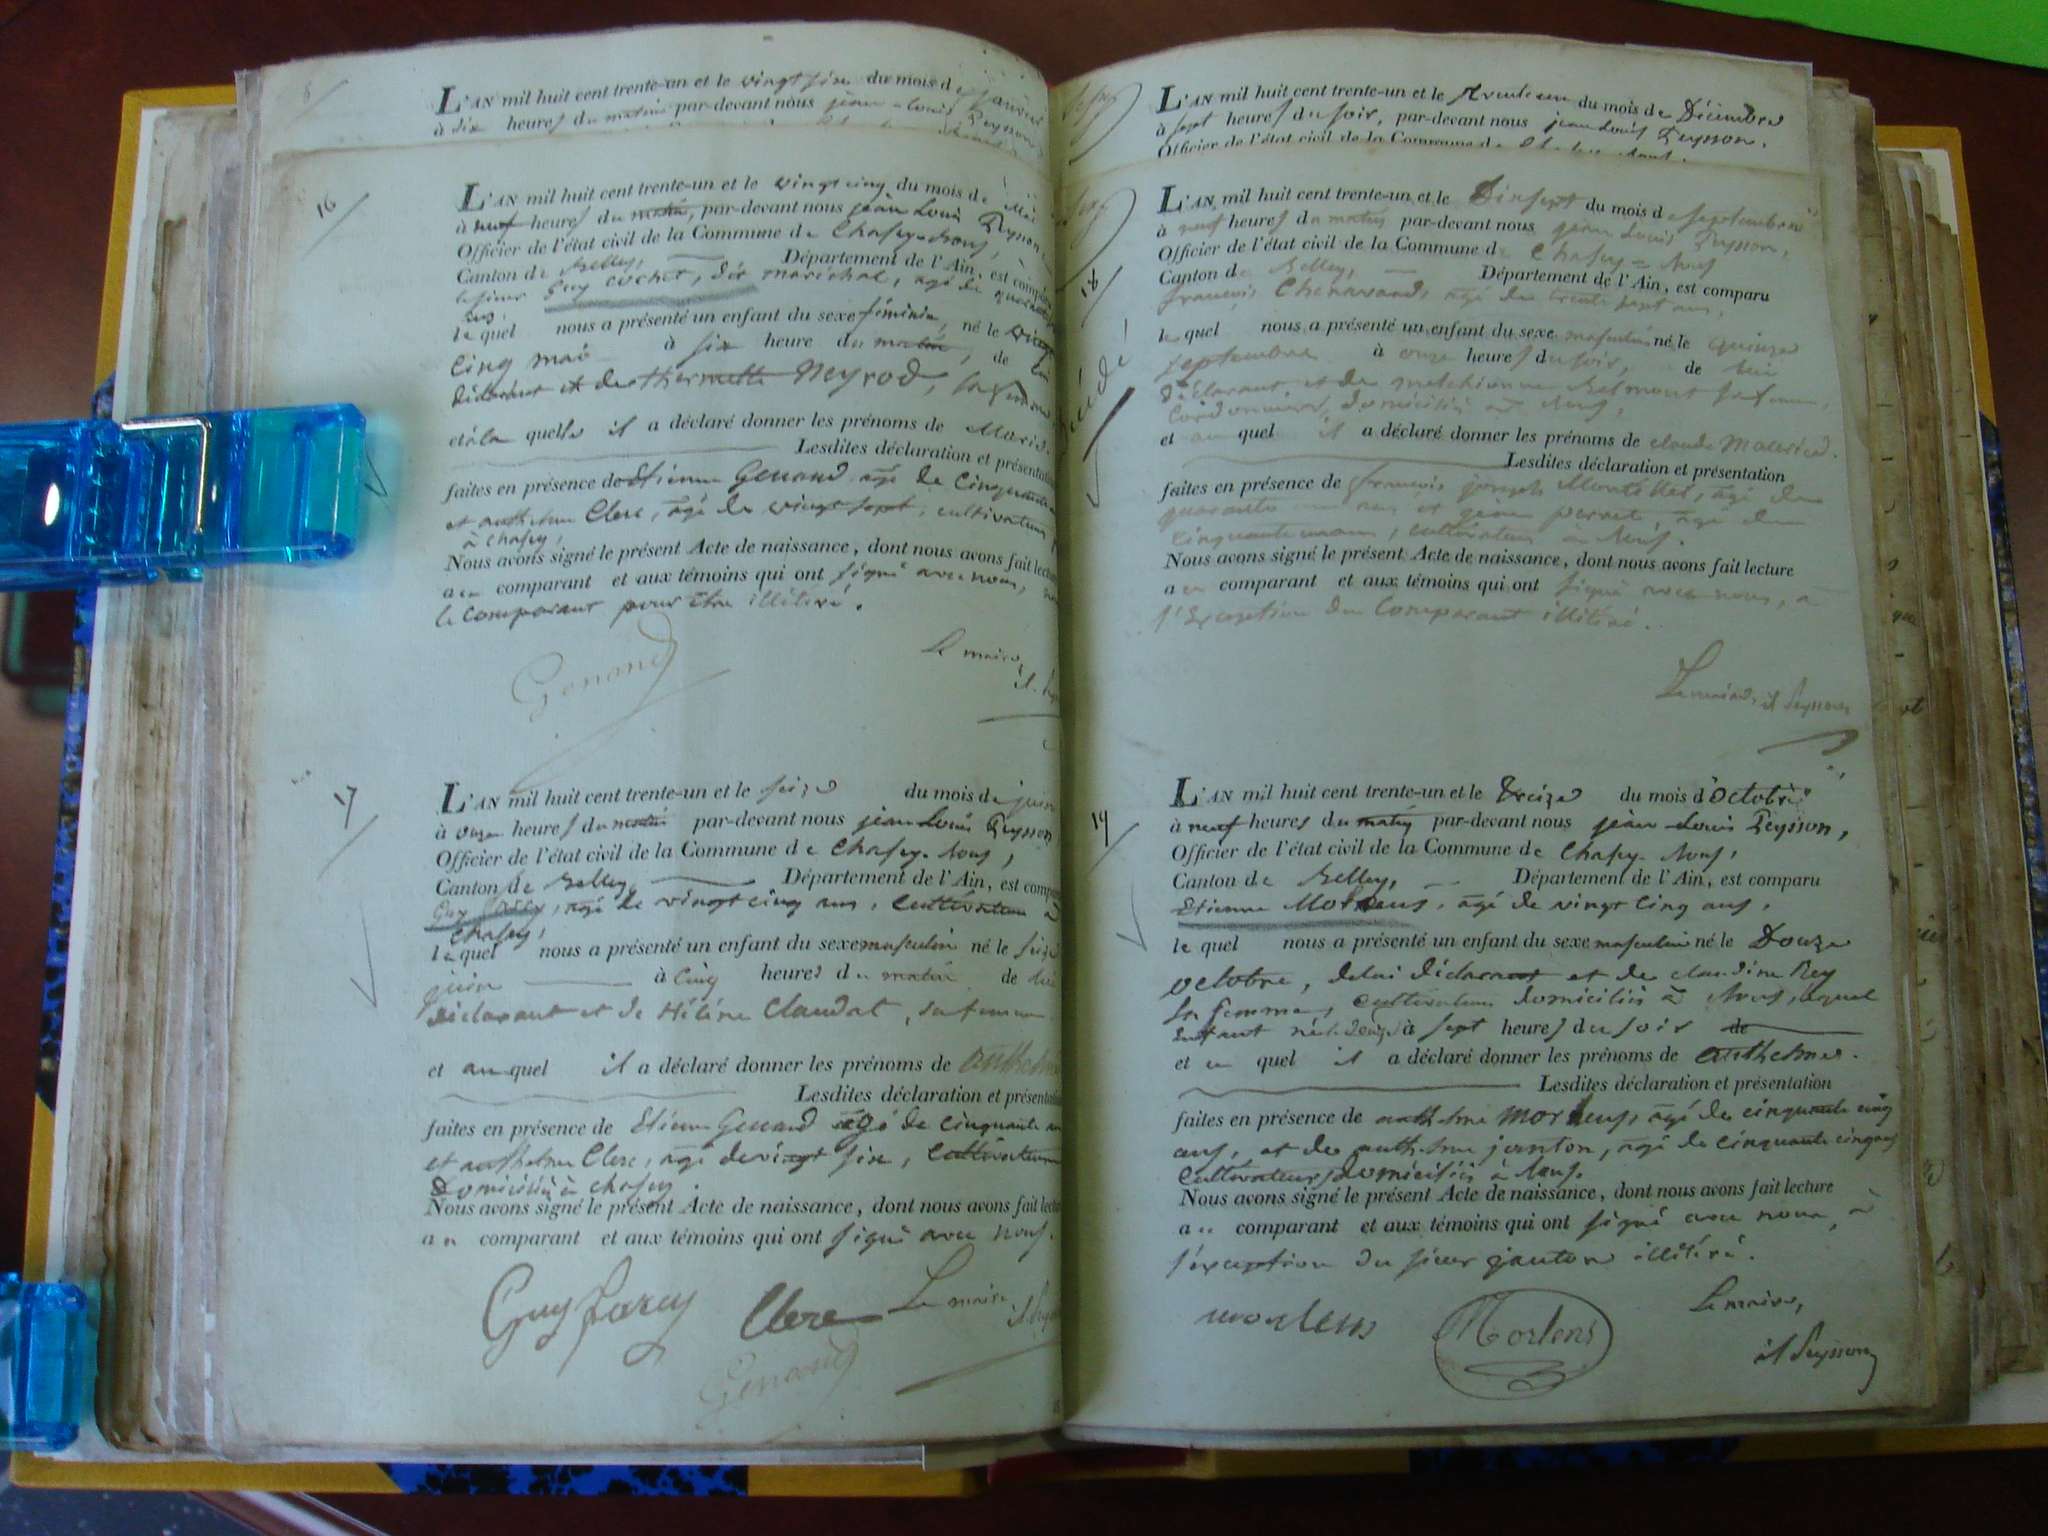 8
L'AN mil huit cent trente-un et le vingt six du mois de janvier
à dix heures du matin par-devant nous jean-Louis Peysson
16
L'AN mil huit cent trente-un et le vingt cinq du mois de Mai
à neuf heures du matin, par-devant nous jean Louis Peysson
Officier de l'état civil de la Commune de Chasey-
Canton de Belley, Département de l'Ain, est comparu
le sieur Guy cochet, dit maréchal, agé de
le quel nous a présenté un enfant du sexe féminin, né le vingt
cinq mai à six heure du matin, de lui
déclarant et de thermette Neyrod, sa femme
et à la quelle il a déclaré donner les prénoms de Marie.
Lesdites déclaration et présentation
faites en présence de Etienne Genand agé de Cinquante
et anthelme Clerc, agé de vingt sept, cultivateurs
à Chasey,
Nous avons signé le présent Acte de naissance, dont nous avons fait lecture
au comparant et aux témoins qui ont signé avec nous,
le Comparant pour être illitéré.
Genand
Le maire,
17
L'AN mil huit cent trente-un et le seize du mois de juin
à onze heures du matin par-devant nous jean Louis Peysson
Officier de l'état civil de la Commune de Chasey-
Canton de Belley, Département de l'Ain, est comparu
Guy, agé de vingt cinq ans, Cultivateur à
Chasey,
le quel nous a présenté un enfant du sexe masculin né le seize
juin à Cinq heures du matin de lui
déclarant et de Hélène Claudat, sa femme
et au quel il a déclaré donner les prénoms de anthelme
Lesdites déclaration et présentation
faites en présence de Etienne Genand agé de cinquante
et anthelme Clerc, agé de vingt six, Cultivateurs
Domiciliés à Chasey.
Nous avons signé le présent Acte de naissance, dont nous avons fait lecture
au comparant et aux témoins qui ont signé avec nous.
Guy Clerc Le maire
Genand
L'AN mil huit cent trente-un et le trente un du mois de Décembre
à sept heures du soir, par-devant nous jean Louis Peysson.
Officier de l'état civil de la Commune de
18
décédé
L'AN mil huit cent trente-un et le Dix sept du mois de septembre
à neuf heures du matin par-devant nous jean Louis Peysson,
Officier de l'état civil de la Commune de Chasey =
Canton de Belley, Département de l'Ain, est comparu
françois Chenavand, agé de trente sept ans,
le quel nous a présenté un enfant du sexe masculin né le quinze
septembre à onze heures du soir, de lui
Déclarant et de melchionne Belmont sa femme,
Cordonnier, domiciliés à
et au quel il a déclaré donner les prénoms de claude Maurice.
Lesdites déclaration et présentation
faites en présence de françois joseph, agé de
quarante ans et jean pernet, agé de
Cinquante un ans, cultivateurs à
Nous avons signé le présent Acte de naissance, dont nous avons fait lecture
au comparant et aux témoins qui ont signé avec nous, à
l'Exception du Comparant illitéré.
Le maire, jl Peysson
19
L'AN mil huit cent trente-un et le Treize du mois d'octobre
à neuf heures du matin par-devant nous jean Louis Peysson,
Officier de l'état civil de la Commune de Chasey-
Canton de Belley, Département de l'Ain, est comparu
Etienne Mortens, agé de vingt Cinq ans,
le quel nous a présenté un enfant du sexe masculin né le Douze
octobre, de lui déclarant et de claudine Rey
Sa femme, cultivateurs domiciliés à, lequel
Enfant né le douze à sept heures du soir de
et au quel il a déclaré donner les prénoms de anthelme.
Lesdites déclaration et présentation
faites en présence de anthelme Mortens, agé de cinquante cinq
ans, et de anthelme janton, agé de cinquante cinq ans
Cultivateurs domiciliés à
Nous avons signé le présent Acte de naissance, dont nous avons fait lecture
au comparant et aux témoins qui ont signé avec nous, à
l'exception du sieur janton illitéré.
mortens Mortens Le maire,
jl Peysson